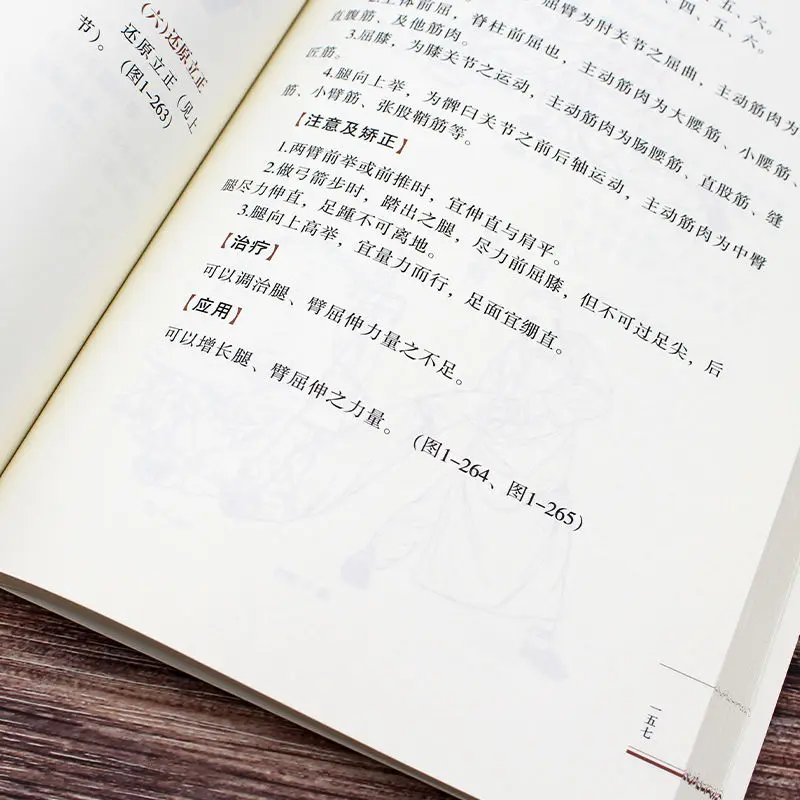 （六）还原立正
还原立正（见上
节）。（图1-263）
五、六。
四、五、六。
屈臂为肘关节之屈曲，主动筋肉为
上体前屈，脊柱前屈也，主动筋肉为大腰筋、小腰筋、
直腹筋、及他筋肉。
3.屈膝，为膝关节之运动，主动筋肉为肠腰筋、直股筋、缝
匠筋。
4.腿向上举，为髀臼关节之前后轴运动，主动筋肉为中臀
筋、小臂筋、张股鞘筋等。
【注意及矫正】
1.两臂前举或前推时，宜伸直与肩平。
2.做弓箭步时，踏出之腿，尽力前屈膝，但不可过足尖，后
腿尽力伸直，足踵不可离地。
3.腿向上高举，宜量力而行，足面宜绷直。
【治疗】
可以调治腿、臂屈伸力量之不足。
【应用】
可以增长腿、臂屈伸之力量。（图1-264、图1-265）
一五七